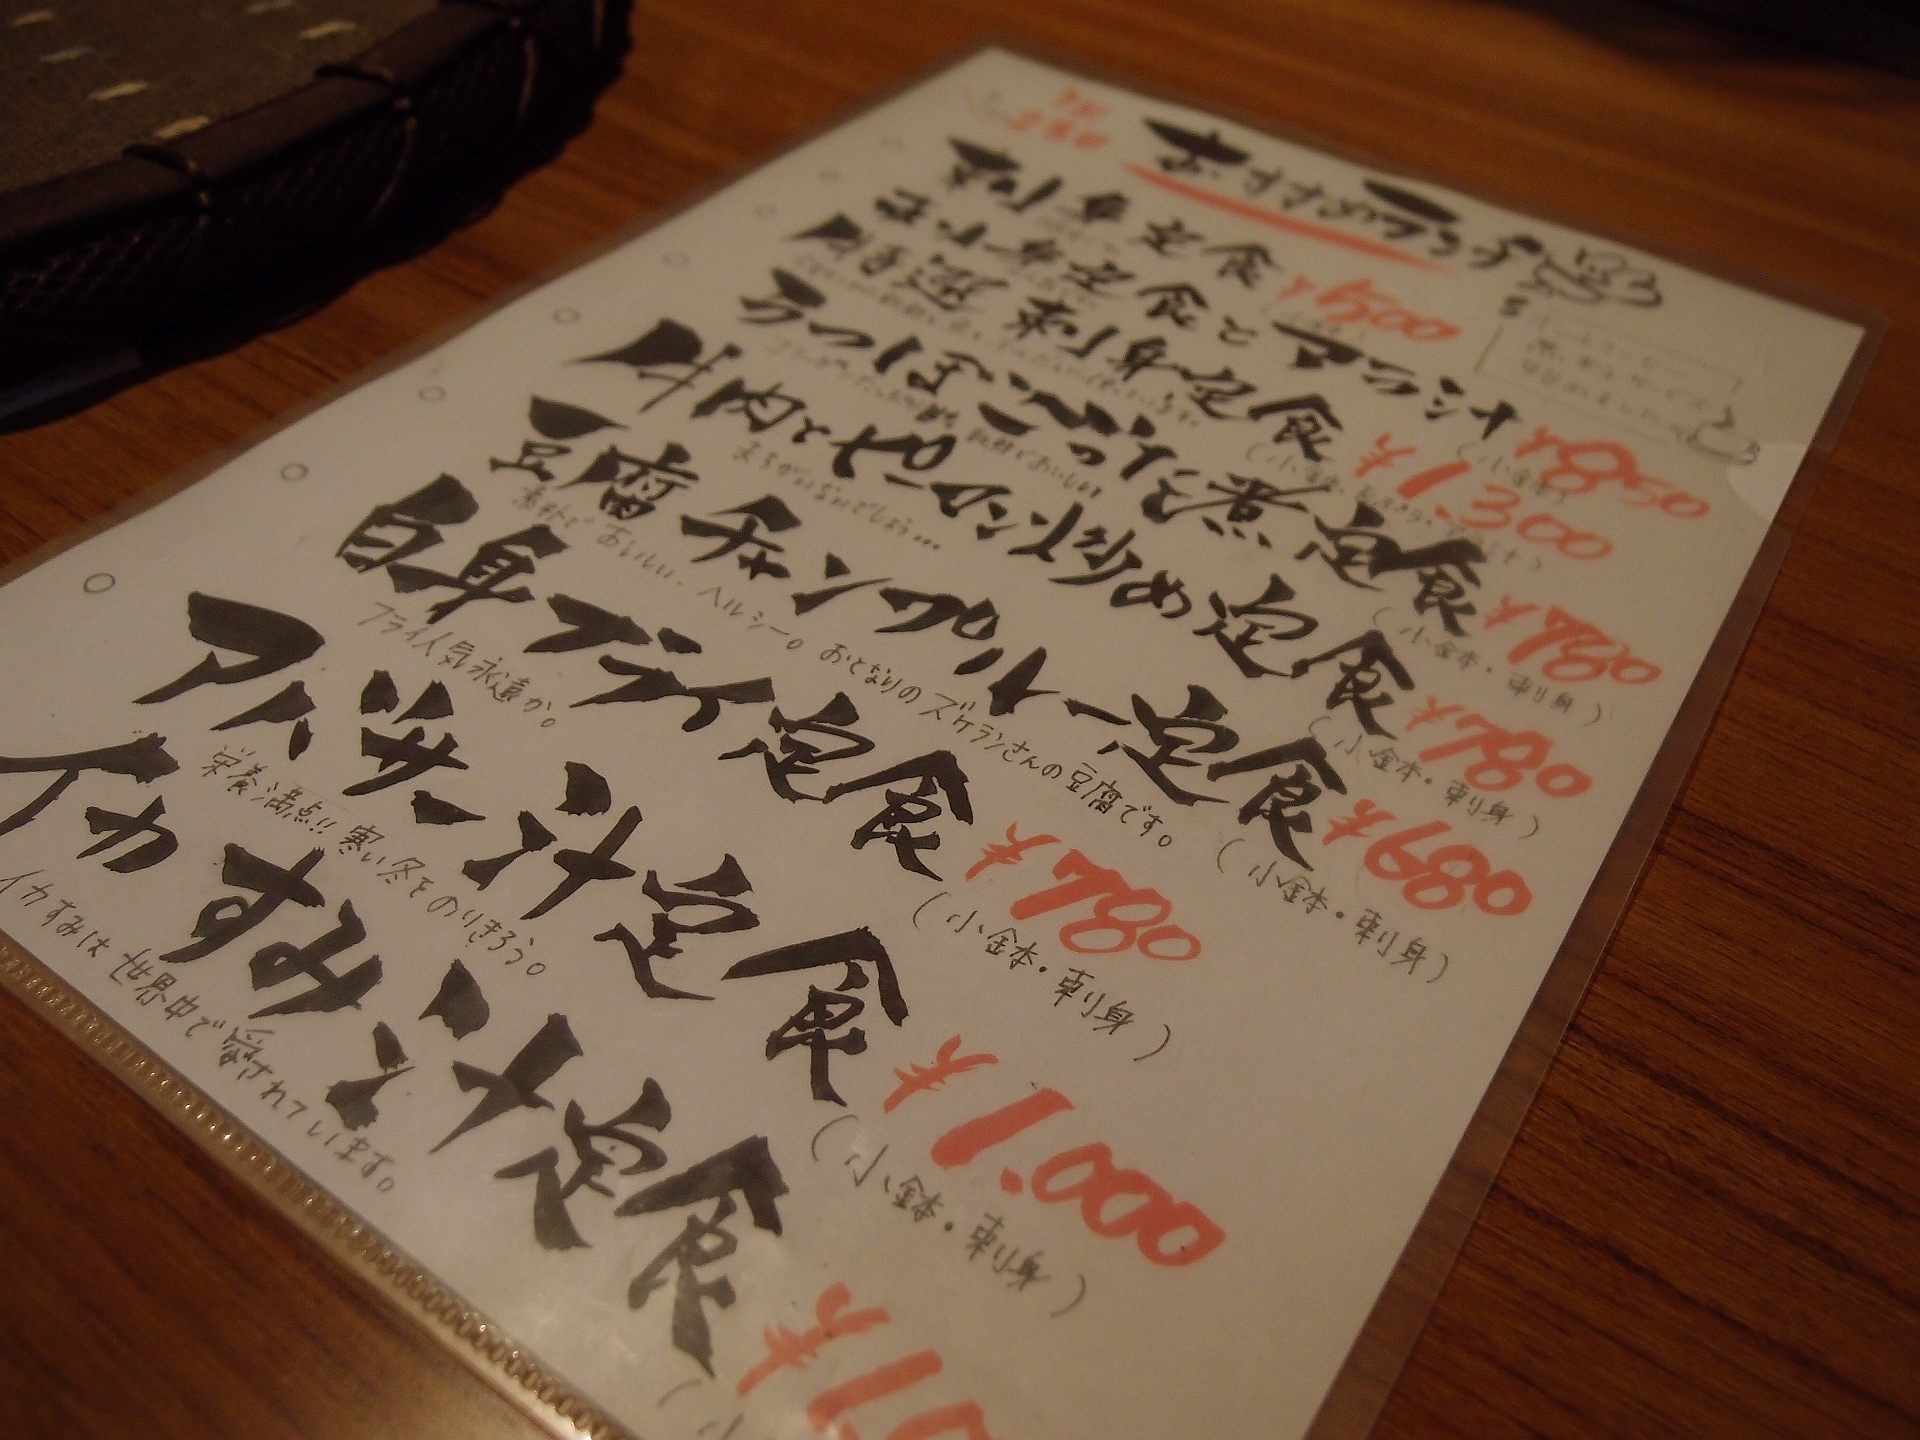 おすすめランチ
刺身定食 ¥500
刺身定食とマース汁 ¥850
(小鉢)
特選刺身定食 ¥1.300
てつだった煮定食 ¥780
(小鉢・刺身)
牛肉とピーマン炒め定食 ¥780
まちがいないでしょう…
(小鉢・刺身)
豆腐チャンプルー定食 ¥680
意外とおいしい、ヘルシー。おとなりのズケランさんの豆腐です。
(小鉢・刺身)
白身フライ定食 ¥780
フライ人気永遠か。
(小鉢・刺身)
アバサー汁定食 ¥1.000
栄養満点!!寒い冬をのりきろう。
(小鉢・刺身)
イカすみ汁定食
イカすみは世界中で愛されています。